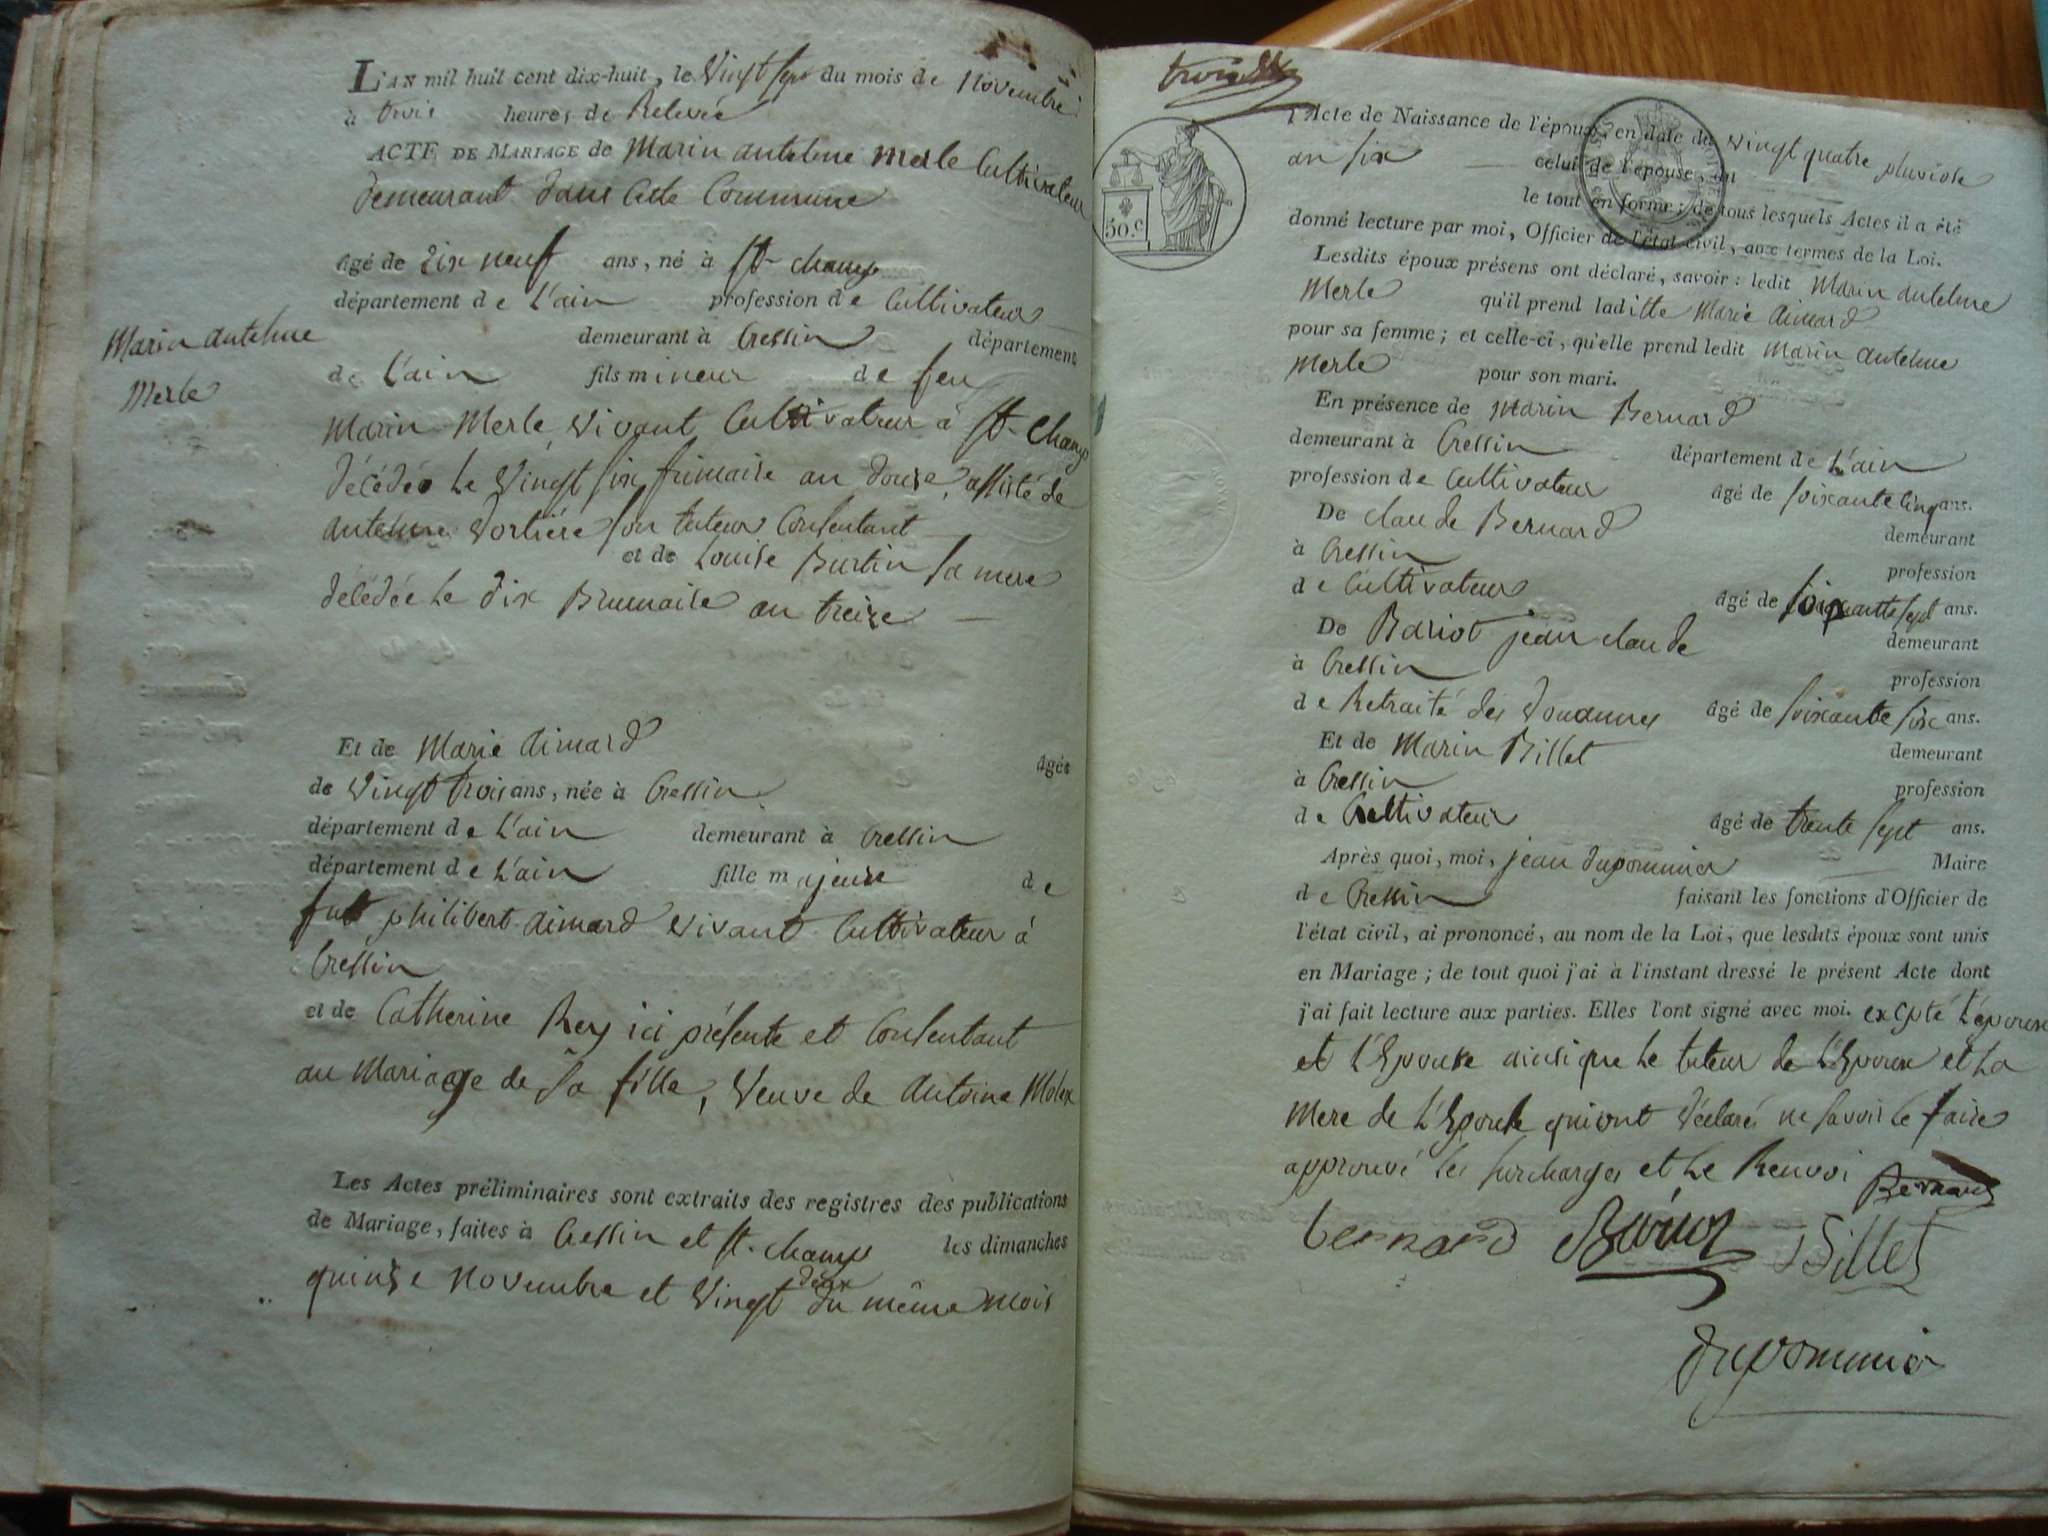 L'AN mil huit cent dix-huit, le Vingt sept du mois de Novembre
à trois heures de Relevée
ACTE DE MARIAGE de Marin antelme Merle Cultivateur
demeurant dans Cette Commune
âgé de dix neuf ans, né à St. champ
département de L'ain profession de Cultivateur
Marin antelme
Merle
demeurant à Cressin département
de L'ain fils mineur de feu
Marin Merle Vivant Cultivateur à St. Champ
décédé Le Vingt six frimaire an douze, assisté de
antelme Vortiére son tuteur Consentant
et de Louise Burtin sa mere
décédée Le dix Brumaire an treize
Et de Marie aimard âgée
de Vingt trois ans, née à Cressin
département de L'ain demeurant à Cressin
département de L'ain fille majeure de
philibert aimard Vivant Cultivateur à
Cressin
et de Catherine Rey ici présente et Consentant
au Mariage de Sa fille, Veuve de antoine Molex
Les Actes préliminaires sont extraits des registres des publications
de Mariage, faites à Cressin et St. champ les dimanches
quinze Novembre et Vingt deux du même mois
50.c
l'Acte de Naissance de l'époux, en date du Vingt quatre pluviose
an six celui de l'épouse, du
le tout en forme; de tous lesquels Actes il a été
donné lecture par moi, Officier de l'état civil, aux termes de la Loi.
Lesdits époux présens ont déclaré, savoir: ledit Marin antelme
Merle qu'il prend laditte Marie aimard
pour sa femme; et celle-ci, qu'elle prend ledit Marin antelme
Merle pour son mari.
En présence de Marin Bernard
demeurant à Cressin département de L'ain
profession de Cultivateur âgé de soixante cinq ans.
De claude Bernard demeurant
à Cressin profession
de Cultivateur âgé de sept ans.
De Bariot jean claude demeurant
à Cressin profession
de Retraité des Douannes âgé de soixante six ans.
Et de Marin Billet demeurant
à Cressin profession
de Cultivateur âgé de trente sept ans.
Après quoi, moi, jean dupommier Maire
de Cressin faisant les fonctions d'Officier de
l'état civil, ai prononcé, au nom de la Loi, que lesdits époux sont unis
en Mariage; de tout quoi j'ai à l'instant dressé le présent Acte dont
j'ai fait lecture aux parties. Elles l'ont signé avec moi. excepté L'époux
et L'Epouse ainsi que Le tuteur de L'Epoux et La
Mere de L'Epouse qui ont déclaré ne savoir le faire
approuvé les surcharges et Le Renvoi Bernard
bernard Bariot Billet
dupommier